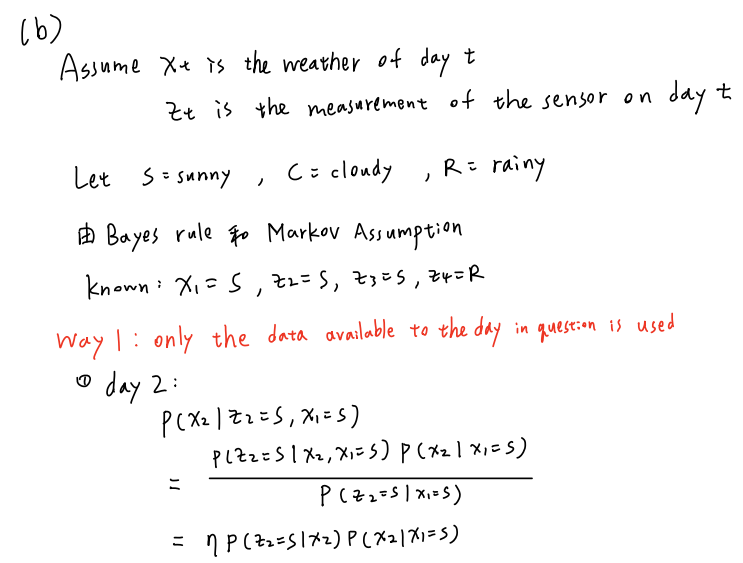 (b)
Assume Xt is the weather of day t
Zt is the measurement of the sensor on day t
Let S = sunny , C = cloudy , R = rainy
由 Bayes rule 和 Markov Assumption
known : X1 = S , Z2 = S, Z3 = S , Z4 = R
Way 1 : only the data available to the day in question is used
① day 2 :
P(X2 | Z2 = S, X1 = S)
= P(Z2 = S | X2, X1 = S) P(X2 | X1 = S)
P(Z2 = S | X1 = S)
= η P(Z2 = S | X2) P(X2 | X1 = S)